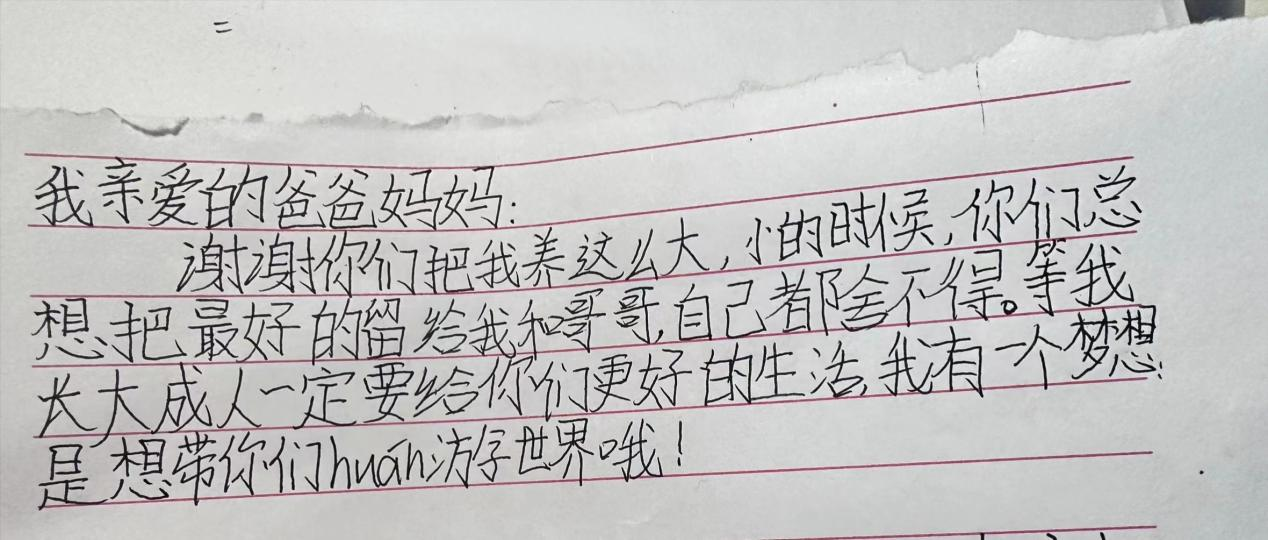 我亲爱的爸爸妈妈：
谢谢你们把我养这么大，小的时候，你们总
想把最好的留给我和哥哥，自己都舍不得。等我
长大成人一定要给你们更好的生活，我有一个梦想：
是想带你们huán游学世界哦！